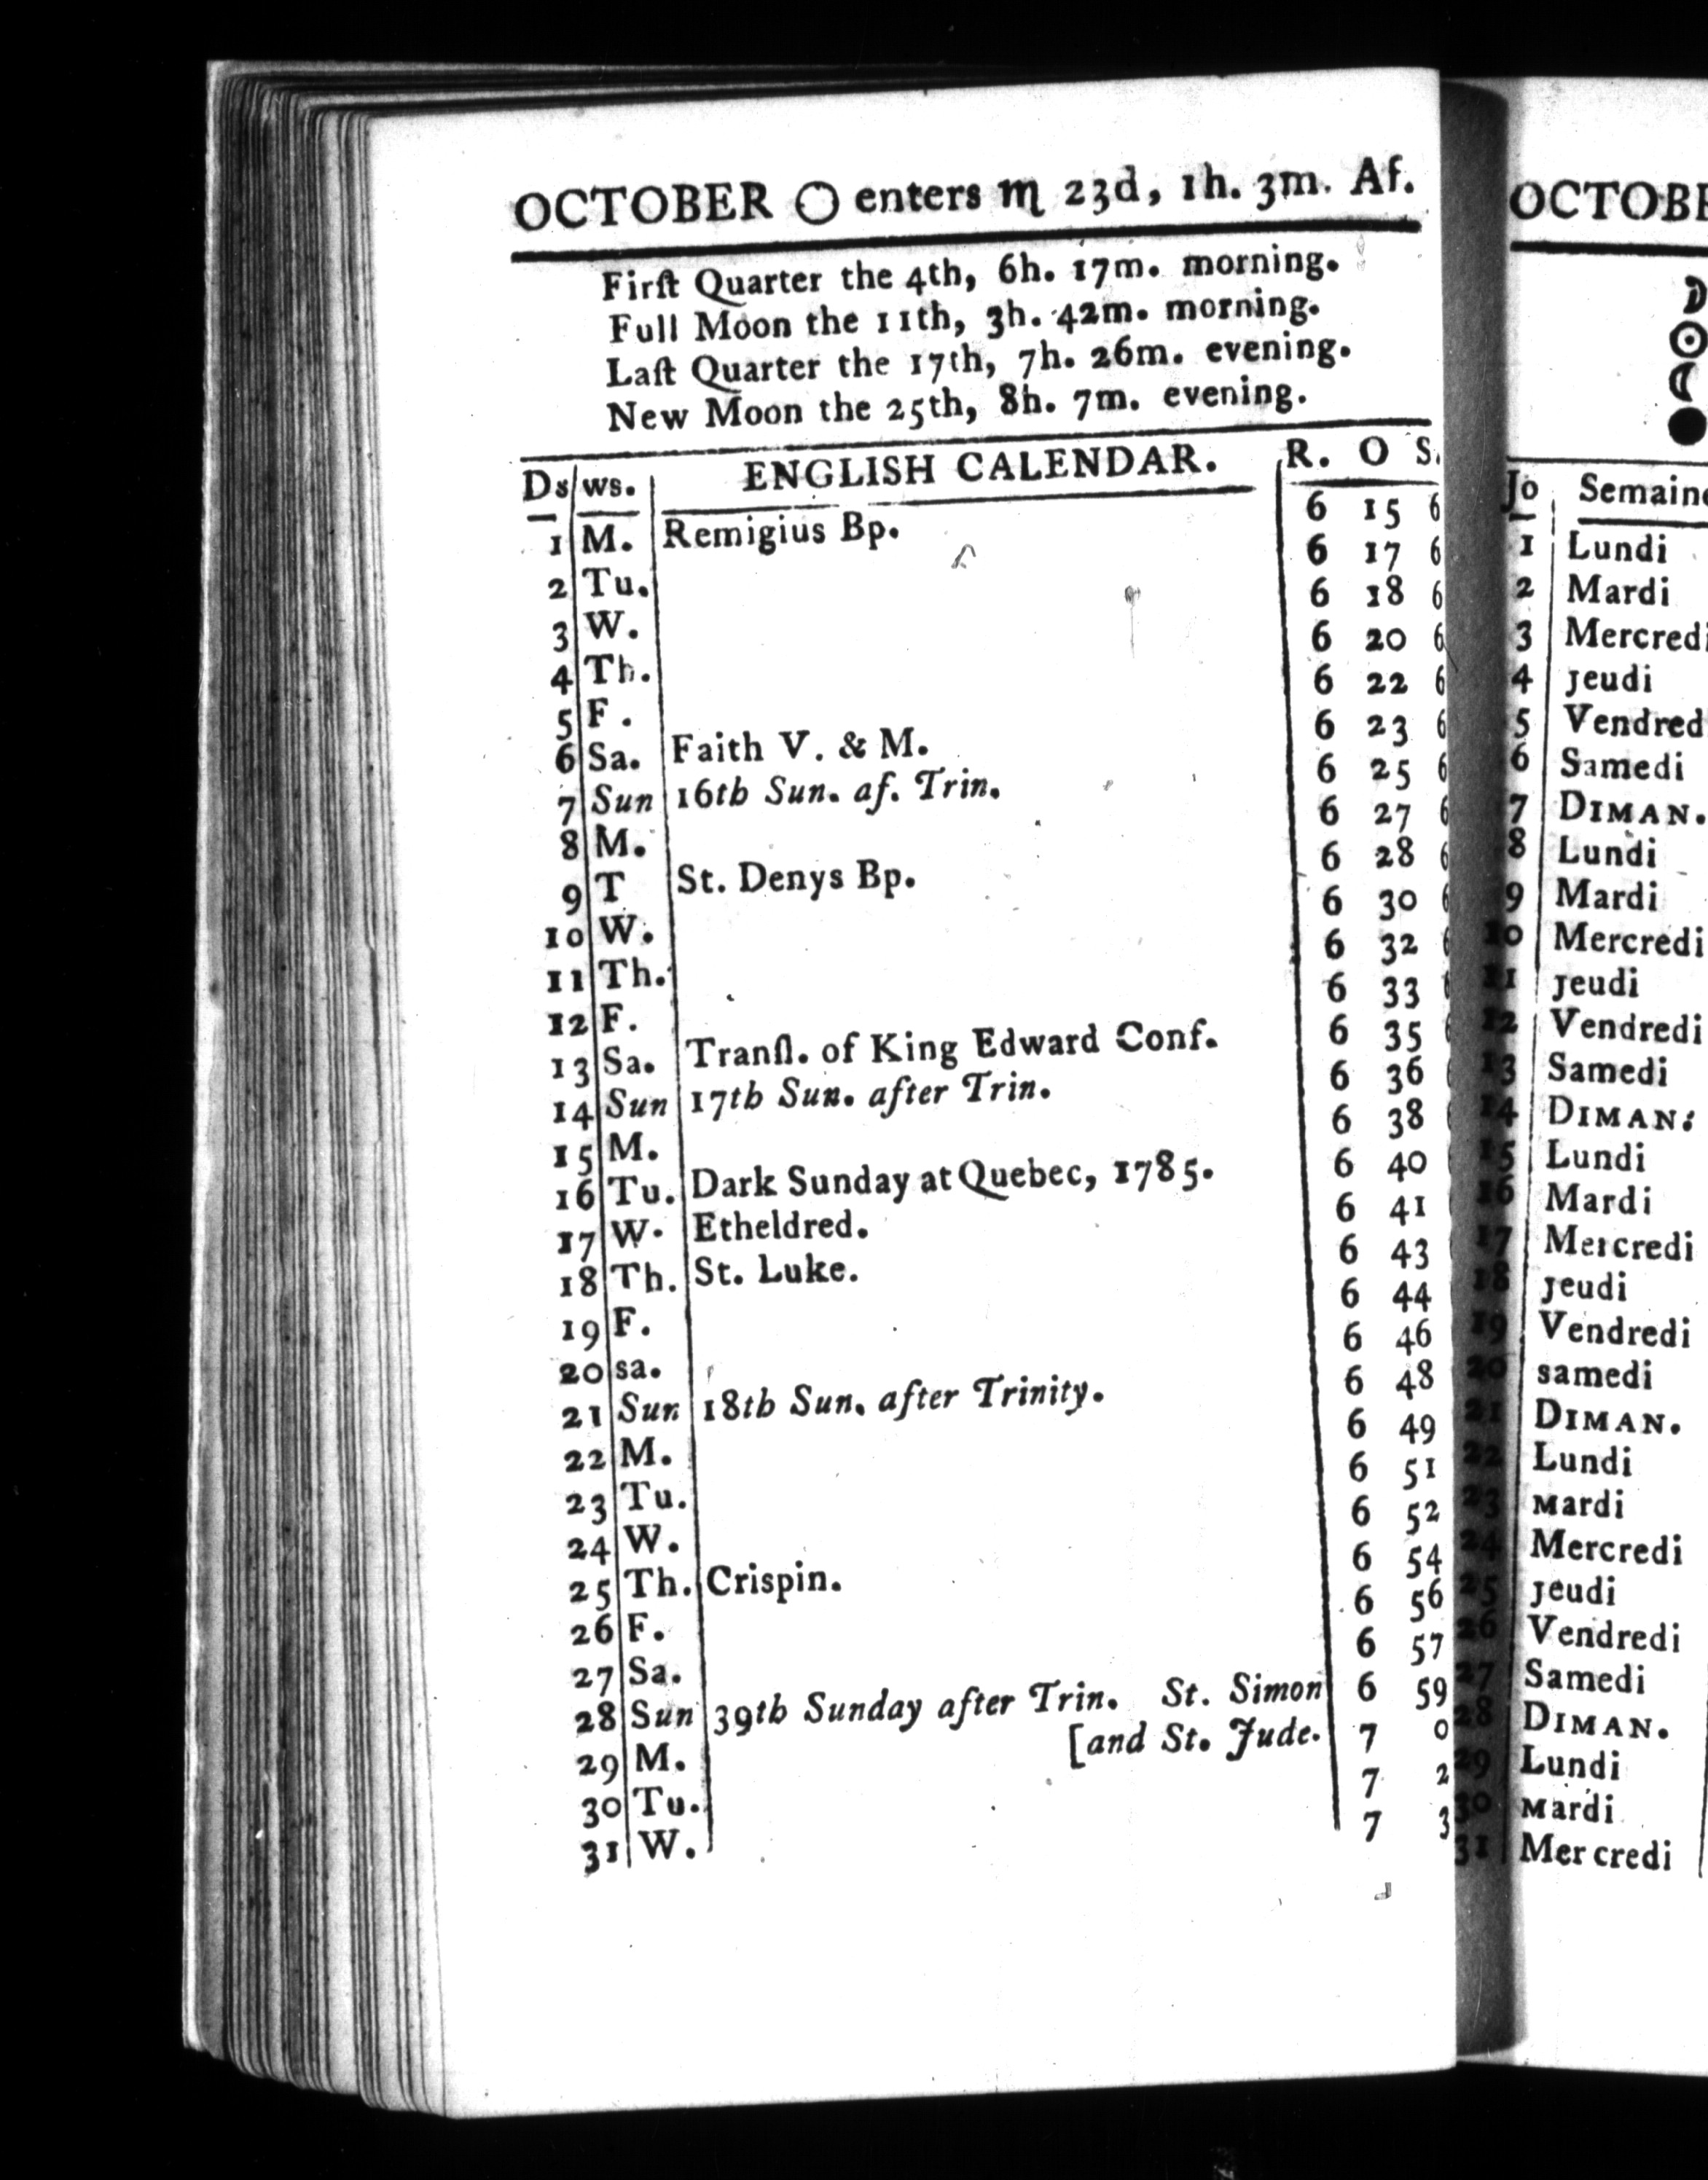 OCTOBER ◯ enters ♏ 23d, 1h. 3m. Af.
Firſt Quarter the 4th, 6h. 17m. morning.
Full Moon the 11th, 3h. 42m. morning.
Laſt Quarter the 17th, 7h. 26m. evening.
New Moon the 25th, 8h. 7m. evening.
Ds ws. ENGLISH CALENDAR. R. O S.
1 M. Remigius Bp. 6 15 6
2 Tu. 6 17 6
3 W. 6 18 6
4 Th. 6 20 6
5 F. 6 22 6
6 Sa. Faith V. & M. 6 23 6
7 Sun 16th Sun. af. Trin. 6 25 6
8 M. 6 27 6
9 T St. Denys Bp. 6 28 6
10 W. 6 30 6
11 Th. 6 32
12 F. 6 33
13 Sa. Tranſl. of King Edward Conf. 6 35
14 Sun 17th Sun. after Trin. 6 36
15 M. 6 38
16 Tu. Dark Sunday at Quebec, 1785. 6 40
17 W. Etheldred. 6 41
18 Th. St. Luke. 6 43
19 F. 6 44
20 sa. 6 46
21 Sun 18th Sun. after Trinity. 6 48
22 M. 6 49
23 Tu. 6 51
24 W. 6 52
25 Th. Crispin. 6 54
26 F. 6 56
27 Sa. 6 57
28 Sun 39th Sunday after Trin. St. Simon 6 59
29 M. [and St. Jude. 7 0
30 Tu. 7 2
31 W. 7 3
OCTOBE
Jo Semaine
1 Lundi
2 Mardi
3 Mercredi
4 jeudi
5 Vendred
6 Samedi
7 DIMAN.
8 Lundi
9 Mardi
10 Mercredi
11 jeudi
12 Vendredi
13 Samedi
14 DIMAN:
15 Lundi
16 Mardi
17 Mercredi
18 jeudi
19 Vendredi
20 samedi
21 DIMAN.
22 Lundi
23 Mardi
24 Mercredi
25 jeudi
26 Vendredi
27 Samedi
28 DIMAN.
29 Lundi
30 Mardi
31 Mercredi